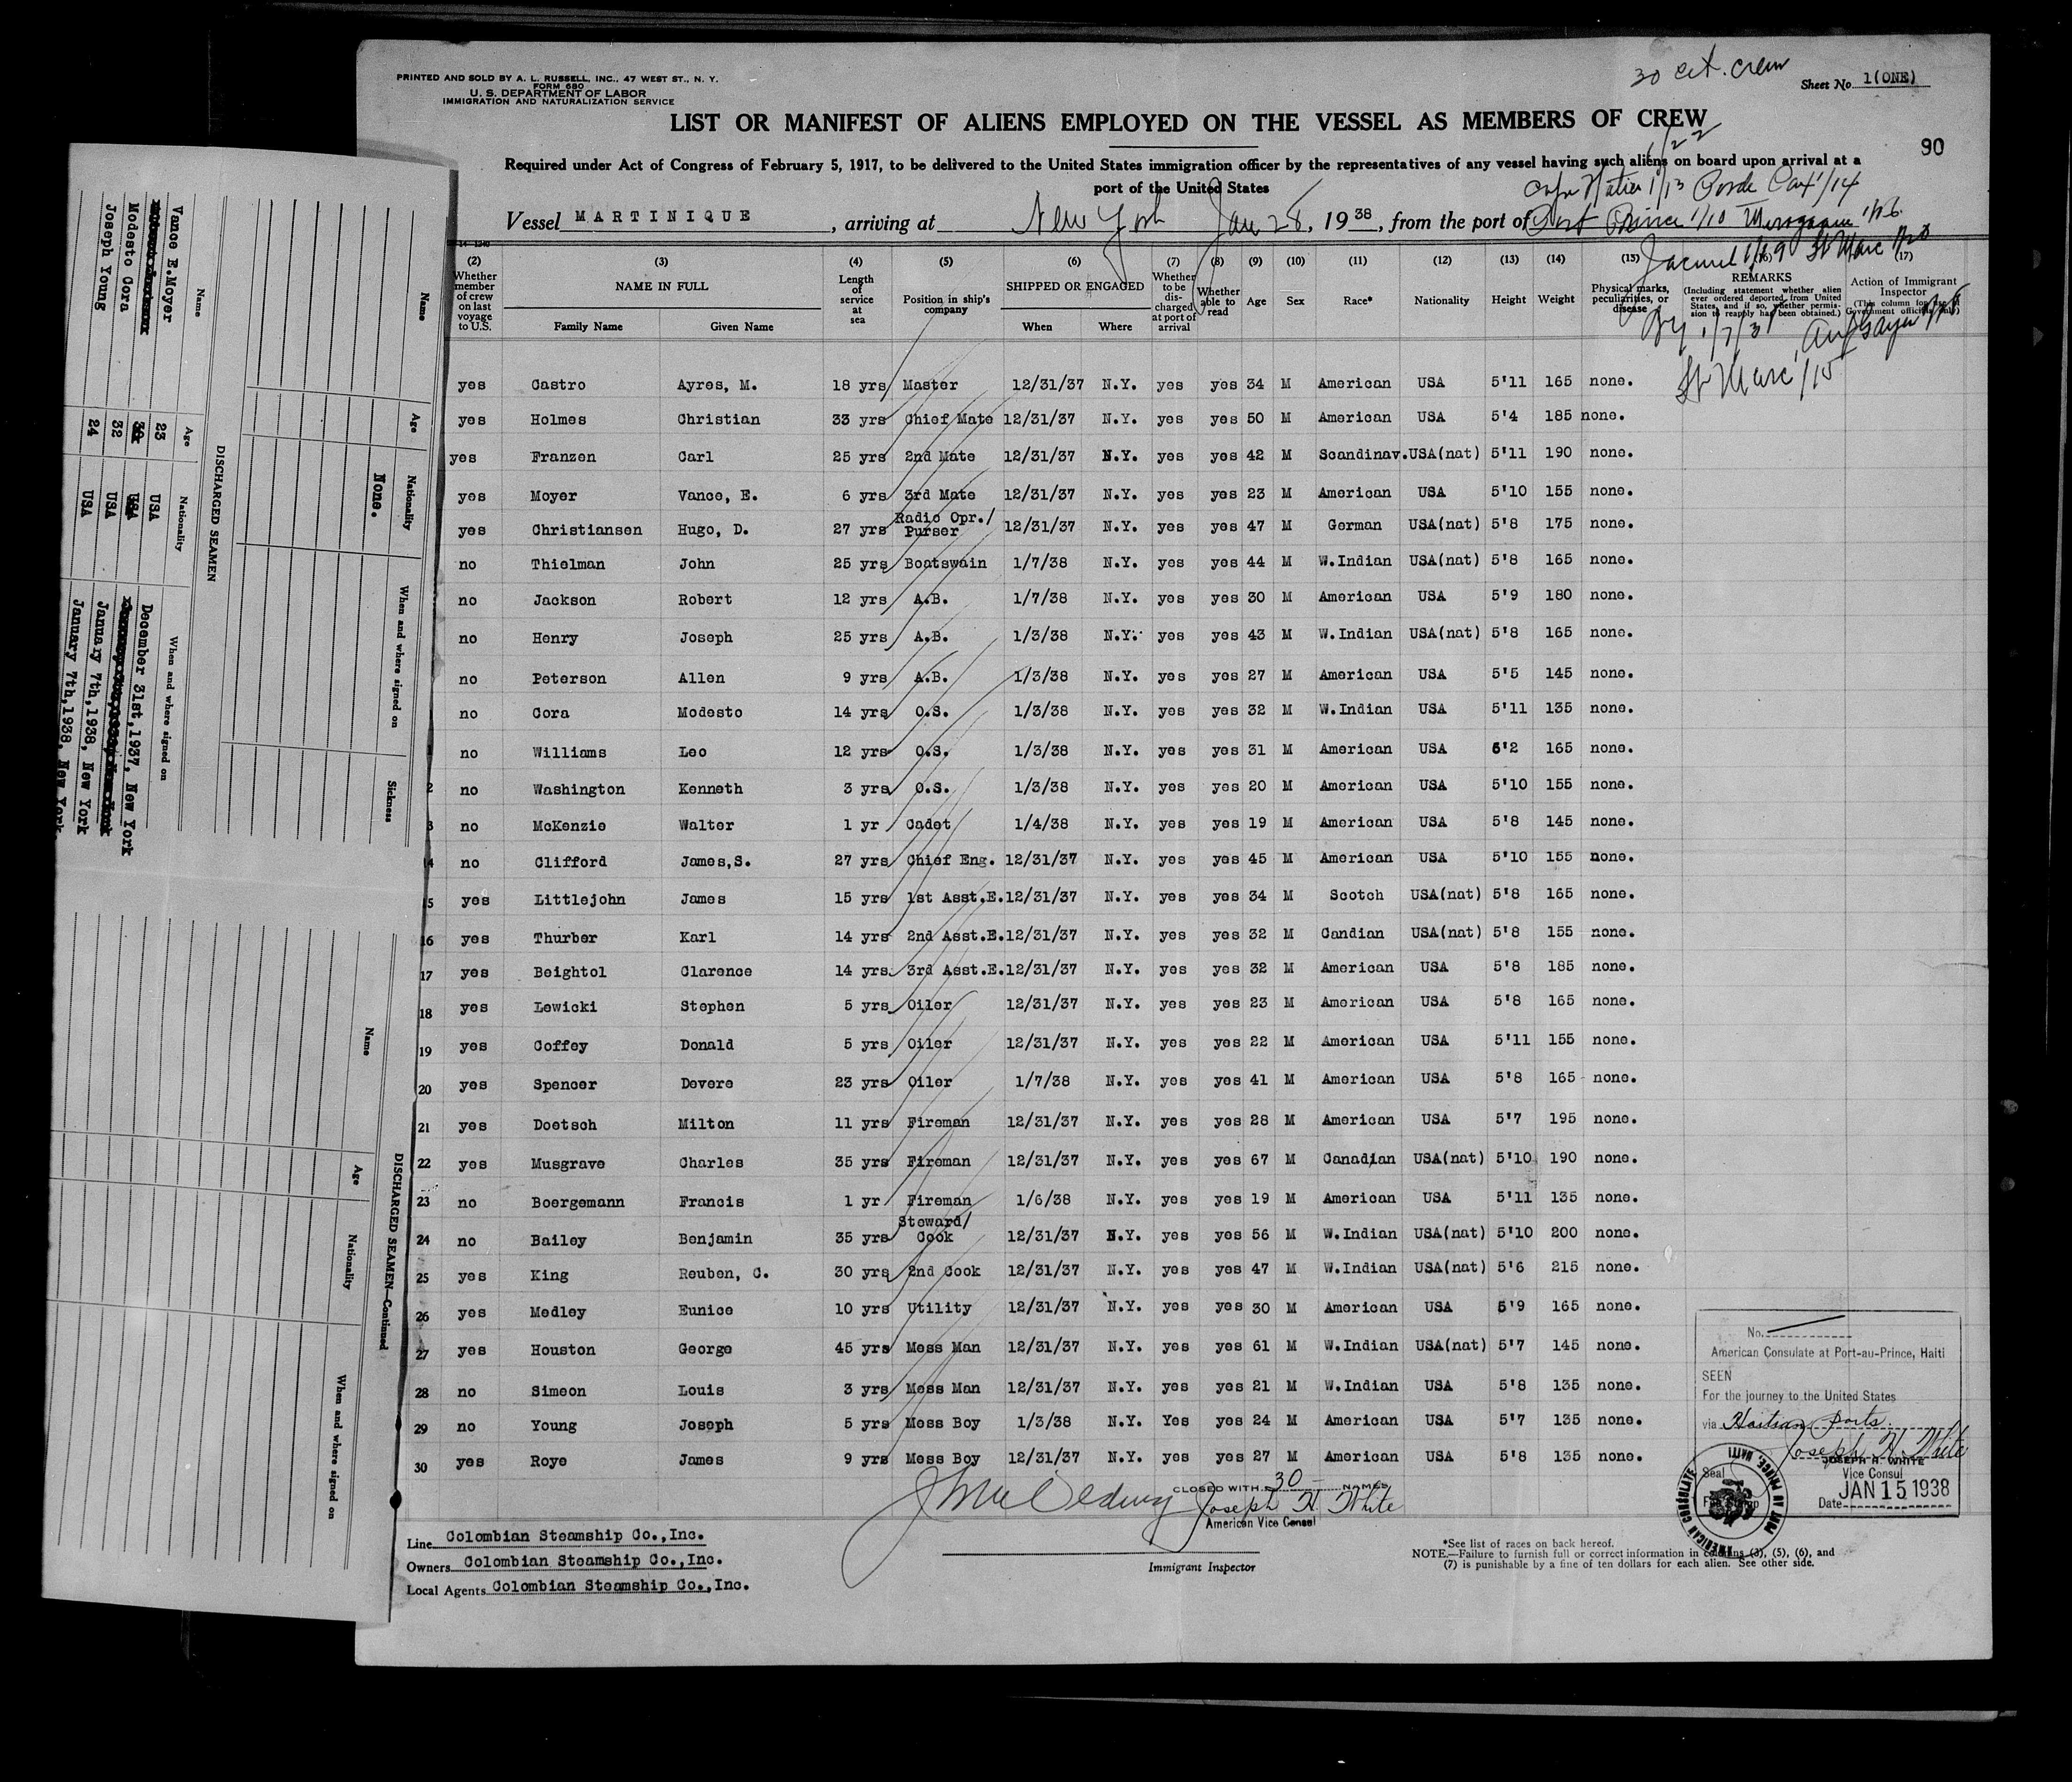 PRINTED AND SOLD BY A. L. RUSSELL, INC., 47 WEST ST., N. Y.
FORM 680
U. S. DEPARTMENT OF LABOR
IMMIGRATION AND NATURALIZATION SERVICE
30 cit. crew
Sheet No. 1(ONE)
LIST OR MANIFEST OF ALIENS EMPLOYED ON THE VESSEL AS MEMBERS OF CREW
1/22
90
Required under Act of Congress of February 5, 1917, to be delivered to the United States immigration officer by the representatives of any vessel having such aliens on board upon arrival at a
port of the United States
1/13 1/14
Vessel MARTINIQUE, arriving at New York Jan 28, 1938, from the port of Port Prince 1/10 Miragoane 1/16
Jacmel 1/19 St Marc
St Marc 1/15
(2) (3) (4) (5) (6) (7) (8) (9) (10) (11) (12) (13) (14) (15) (16) (17)
Whether member of crew on last voyage to U.S. NAME IN FULL Length of service at sea Position in ship's company SHIPPED OR ENGAGED Whether to be discharged at port of arrival Whether able to read Age Sex Race* Nationality Height Weight Physical marks, peculiarities, or disease REMARKS Action of Immigrant Inspector
(Including statement whether alien ever ordered deported from United States, and if so, whether permission to reapply has been obtained.) (This column for use of Government officials only)
Family Name Given Name When Where
yes Castro Ayres, M. 18 yrs Master 12/31/37 N.Y. yes yes 34 M American USA 5'11 165 none.
yes Holmes Christian 33 yrs Chief Mate 12/31/37 N.Y. yes yes 50 M American USA 5'4 185 none.
yes Franzen Carl 25 yrs 2nd Mate 12/31/37 N.Y. yes yes 42 M Scandinav. USA(nat) 5'11 190 none.
yes Moyer Vance, E. 6 yrs 3rd Mate 12/31/37 N.Y. yes yes 23 M American USA 5'10 155 none.
yes Christiansen Hugo, D. 27 yrs Radio Opr./Purser 12/31/37 N.Y. yes yes 47 M German USA(nat) 5'8 175 none.
no Thielman John 25 yrs Boatswain 1/7/38 N.Y. yes yes 44 M W.Indian USA(nat) 5'8 165 none.
no Jackson Robert 12 yrs A.B. 1/7/38 N.Y. yes yes 30 M American USA 5'9 180 none.
no Henry Joseph 25 yrs A.B. 1/3/38 N.Y. yes yes 43 M W.Indian USA(nat) 5'8 165 none.
no Peterson Allen 9 yrs A.B. 1/3/38 N.Y. yes yes 27 M American USA 5'5 145 none.
no Cora Modesto 14 yrs O.S. 1/3/38 N.Y. yes yes 32 M W.Indian USA 5'11 135 none.
1 no Williams Leo 12 yrs O.S. 1/3/38 N.Y. yes yes 31 M American USA 6'2 165 none.
2 no Washington Kenneth 3 yrs O.S. 1/3/38 N.Y. yes yes 20 M American USA 5'10 155 none.
3 no McKenzie Walter 1 yr Cadet 1/4/38 N.Y. yes yes 19 M American USA 5'8 145 none.
14 no Clifford James,S. 27 yrs Chief Eng. 12/31/37 N.Y. yes yes 45 M American USA 5'10 155 none.
15 yes Littlejohn James 15 yrs 1st Asst.E. 12/31/37 N.Y. yes yes 34 M Scotch USA(nat) 5'8 165 none.
16 yes Thurber Karl 14 yrs 2nd Asst.E. 12/31/37 N.Y. yes yes 32 M Candian USA(nat) 5'8 155 none.
17 yes Beightol Clarence 14 yrs. 3rd Asst.E. 12/31/37 N.Y. yes yes 32 M American USA 5'8 185 none.
18 yes Lewicki Stephen 5 yrs Oiler 12/31/37 N.Y. yes yes 23 M American USA 5'8 165 none.
19 yes Coffey Donald 5 yrs Oiler 12/31/37 N.Y. yes yes 22 M American USA 5'11 155 none.
20 yes Spencer Devere 23 yrs Oiler 1/7/38 N.Y. yes yes 41 M American USA 5'8 165 none.
21 yes Doetsch Milton 11 yrs Fireman 12/31/37 N.Y. yes yes 28 M American USA 5'7 195 none.
22 yes Musgrave Charles 35 yrs Fireman 12/31/37 N.Y. yes yes 67 M Canadian USA(nat) 5'10 190 none.
23 no Boergemann Francis 1 yr Fireman 1/6/38 N.Y. yes yes 19 M American USA 5'11 135 none.
24 no Bailey Benjamin 35 yrs Steward/Cook 12/31/37 N.Y. yes yes 56 M W.Indian USA(nat) 5'10 200 none.
25 yes King Reuben, C. 30 yrs 2nd Cook 12/31/37 N.Y. yes yes 47 M W.Indian USA(nat) 5'6 215 none.
26 yes Medley Eunice 10 yrs Utility 12/31/37 N.Y. yes yes 30 M American USA 5'9 165 none.
27 yes Houston George 45 yrs Mess Man 12/31/37 N.Y. yes yes 61 M W.Indian USA(nat) 5'7 145 none.
28 no Simeon Louis 3 yrs Mess Man 12/31/37 N.Y. yes yes 21 M W.Indian USA 5'8 135 none.
29 no Young Joseph 5 yrs Mess Boy 1/3/38 N.Y. Yes yes 24 M American USA 5'7 135 none.
30 yes Roye James 9 yrs Mess Boy 12/31/37 N.Y. yes yes 27 M American USA 5'8 135 none.
CLOSED WITH 30 NAMES
Joseph H. White
American Vice Consul
Immigrant Inspector
Line Colombian Steamship Co.,Inc.
Owners Colombian Steamship Co.,Inc.
Local Agents Colombian Steamship Co.,Inc.
*See list of races on back hereof.
NOTE.—Failure to furnish full or correct information in columns (3), (5), (6), and
(7) is punishable by a fine of ten dollars for each alien. See other side.
No.
American Consulate at Port-au-Prince, Haiti
SEEN
For the journey to the United States
via Haitian Ports.
Joseph H. White
JOSEPH H. WHITE
Vice Consul
Seal
Fee Stamp
Date JAN 15 1938
AMERICAN CONSULATE PORT AU PRINCE, HAITI
Name Age Nationality When and where signed on Sickness
None.
DISCHARGED SEAMEN
Name Age Nationality When and where signed on
Vance E.Moyer 23 USA December 31st,1937, New York
Modesto Cora 32 USA January 7th,1938, New York
Joseph Young 24 USA January 7th,1938, New York
DISCHARGED SEAMEN—Continued
Name Age Nationality When and where signed on